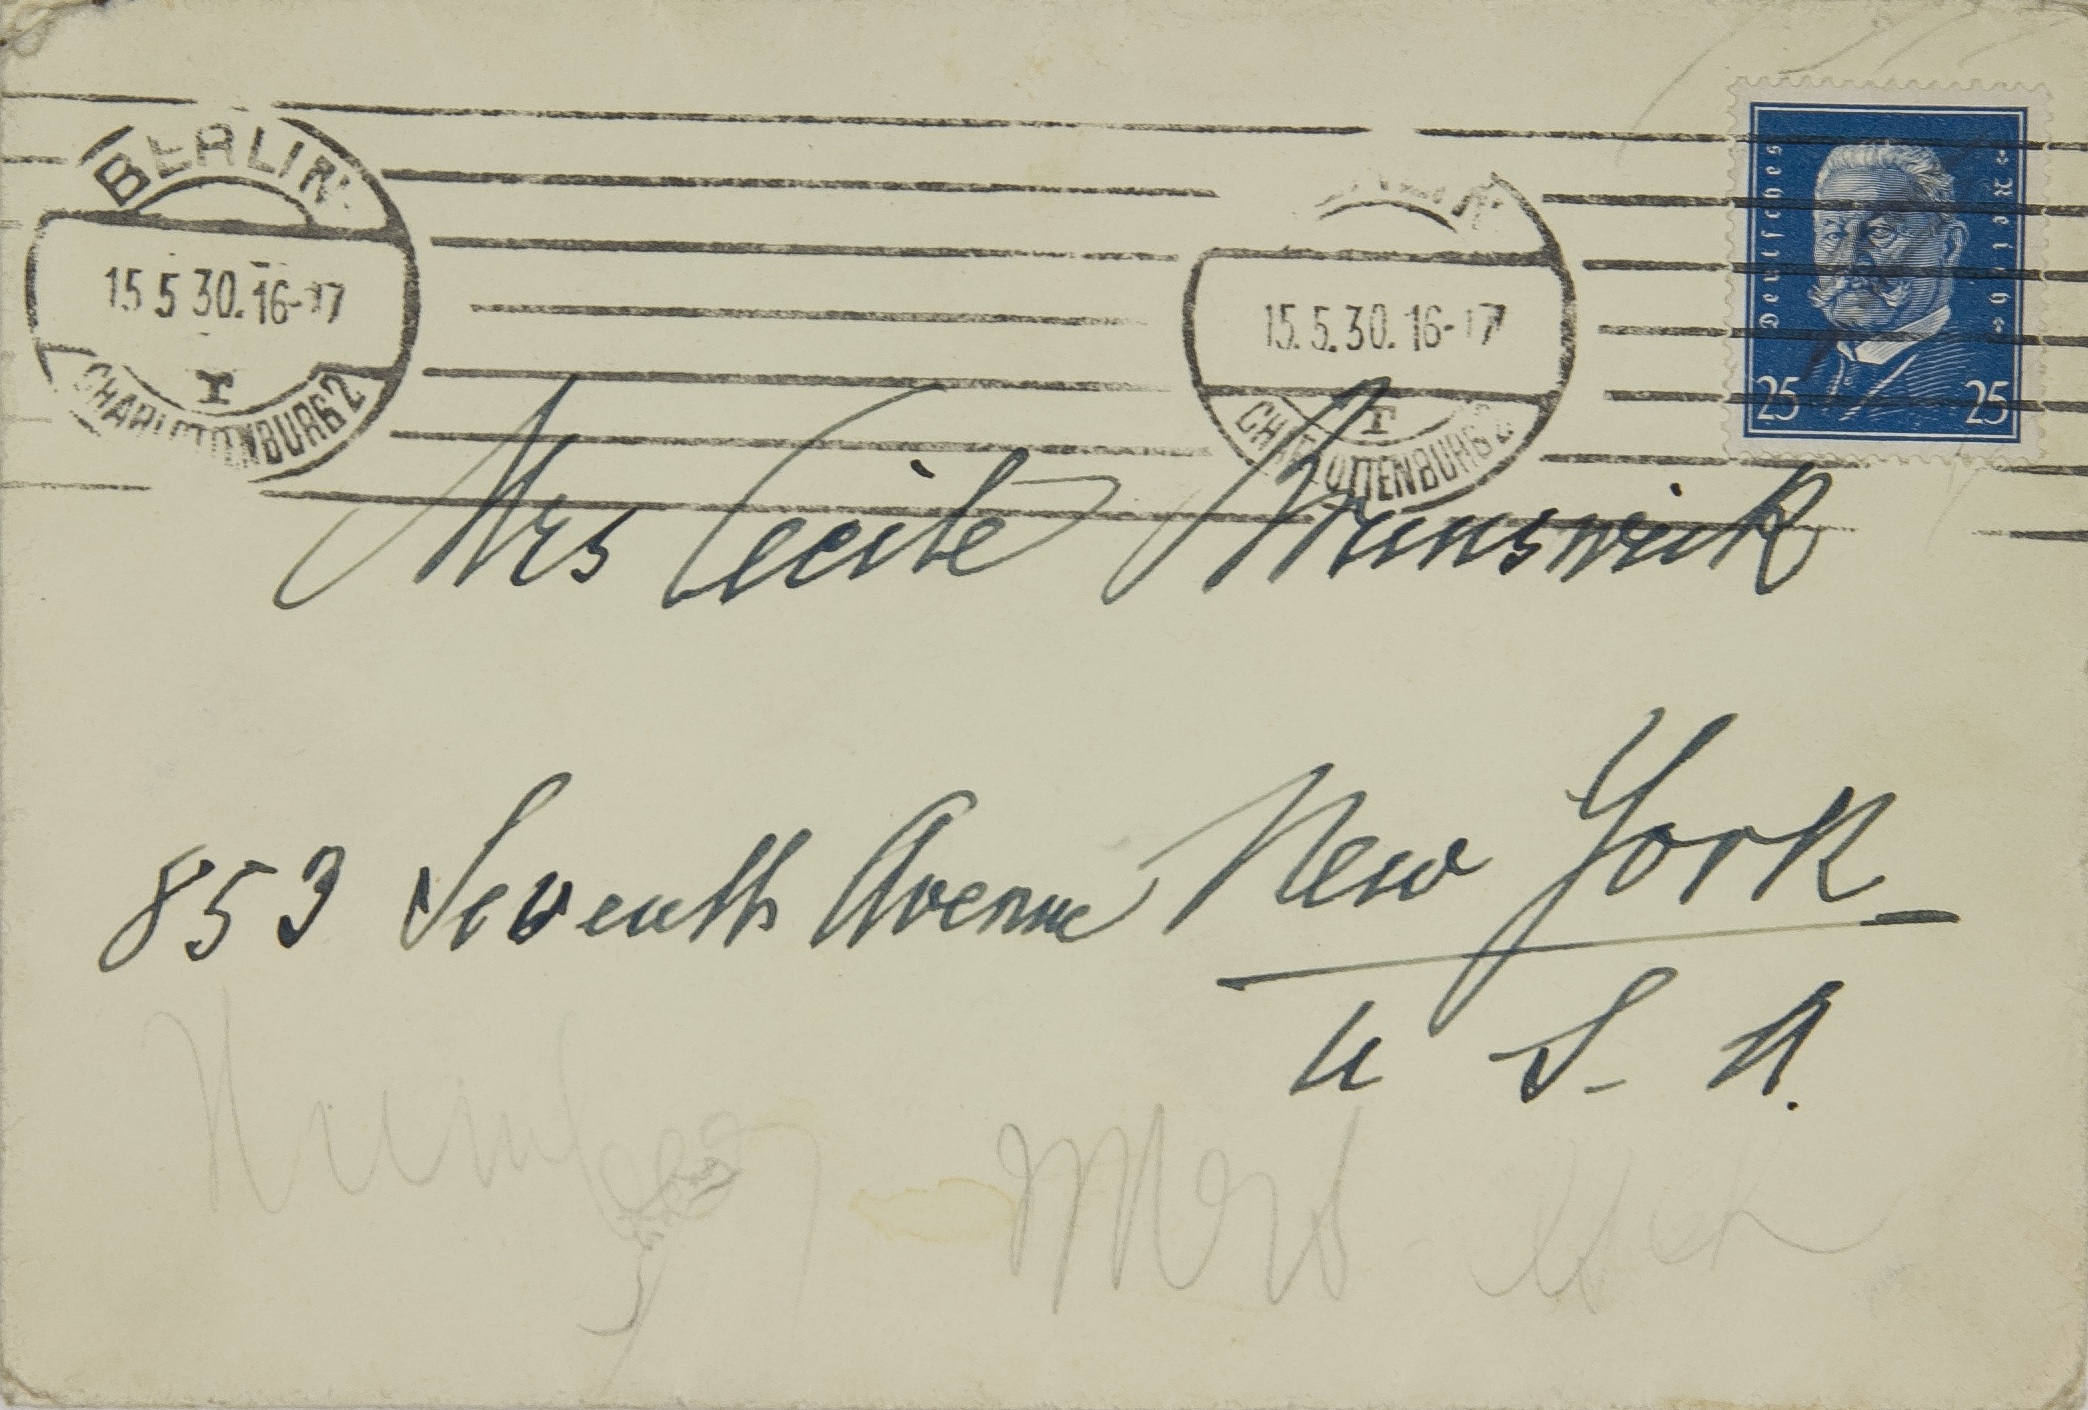 BERLIN
15.5.30.16-17
r
CHARLOTTENBURG 2
15.5.30.16-17
r
CHARLOTTENBURG 2
Deutsches
Reich
25 25
Mrs Cecile Brunswick
853 Seventh Avenue New York
U S A.